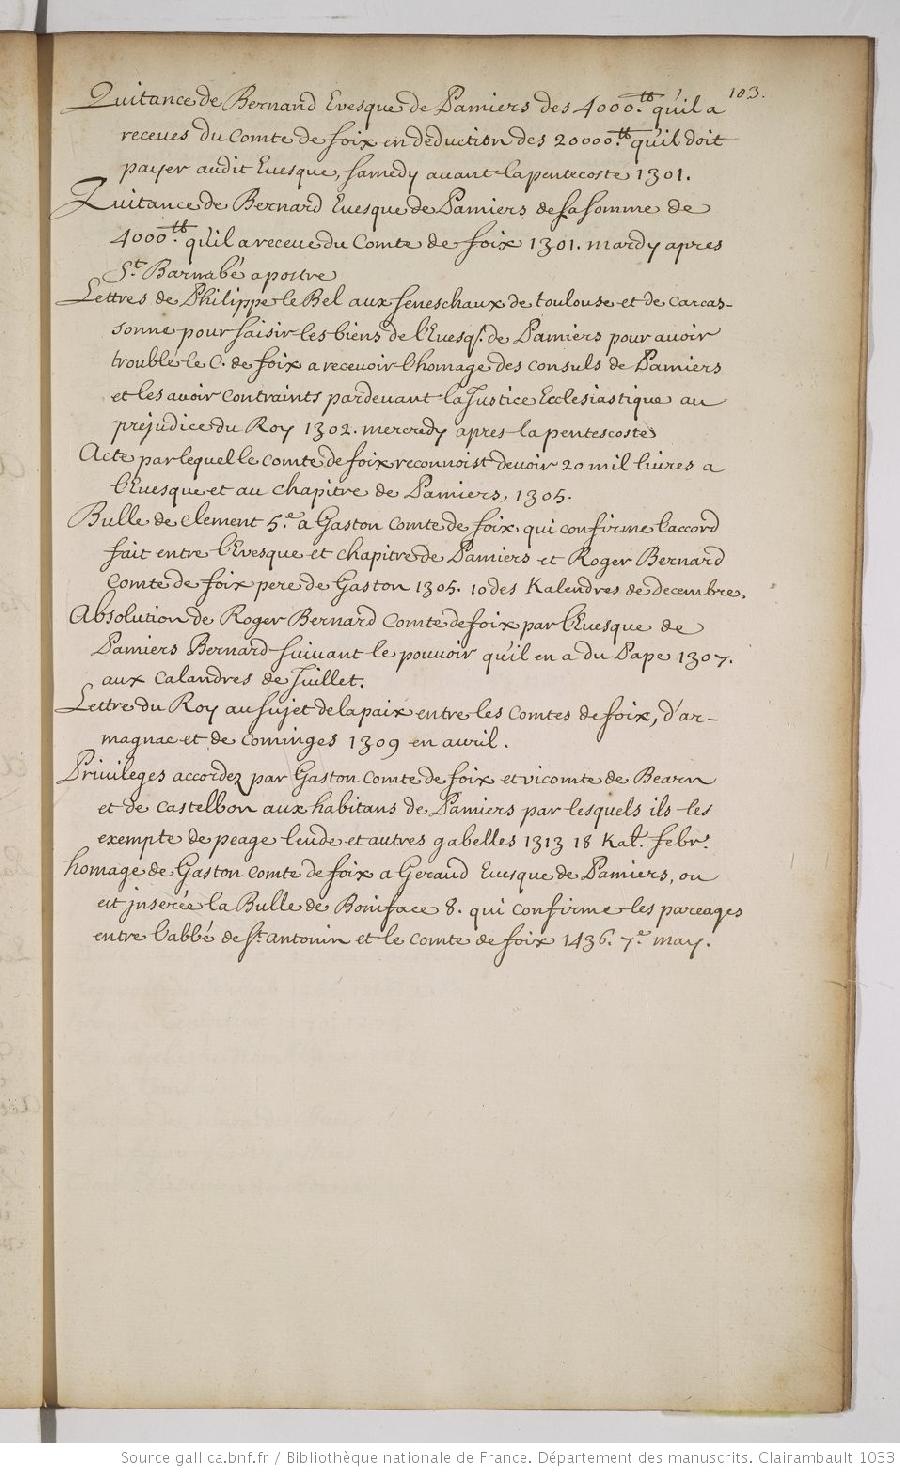 103.
Quitance de Bernard Evesque de Pamiers des 4000.tt qu'il a
receues du Comte de foix en deduction des 20000.tt qu'il doit
payer audit Evesque, samedy avant la pentecoste 1301.
Quitance de Bernard Evesque de Pamiers de sa somme de
4000.tt qu'il a receue du Comte de foix 1301. mardy apres
St. Barnabé apostre
Lettres de Philippe le Bel aux seneschaux de toulouse et de carcas-
sonne pour saisir les biens de l'Evesq. de Pamiers pour avoir
troublé le C. de foix a recevoir l'homage des consuls de Pamiers
et les avoir contraints pardevant la Justice Ecclesiastique au
prejudice du Roy 1302. mercredy apres la pentescoste
Acte par lequel le comte de foix reconnoist devoir 20 mil livres a
l'Evesque et au chapitre de Pamiers, 1305.
Bulle de clement 5.e a Gaston comte de foix qui confirme l'accord
fait entre l'Evesque et chapitre de Pamiers et Roger Bernard
Comte de foix pere de Gaston 1305. 10 des Kalendres de decembre.
Absolution de Roger Bernard Comte de foix par l'Evesque de
Pamiers Bernard suivant le pouvoir qu'il en a du Pape 1307.
aux calandres de Juillet.
Lettre du Roy au sujet de la paix entre les Comtes de foix, d'ar-
magnac et de cominges 1309 en avril.
Privileges accordez par Gaston comte de foix et vicomte de Bearn
et de castelbon aux habitans de Pamiers par lesquels ils les
exempte de peage leude et autres gabelles 1313 18 Kal. febr.
homage de Gaston comte de foix a Geraud Evesque de Pamiers, ou
est inserée la Bulle de Boniface 8. qui confirme les pareages
entre l'abbé de St. antonin et le comte de foix 1436. 7.e may.
Source gallica.bnf.fr / Bibliothèque nationale de France. Département des manuscrits. Clairambault 1033